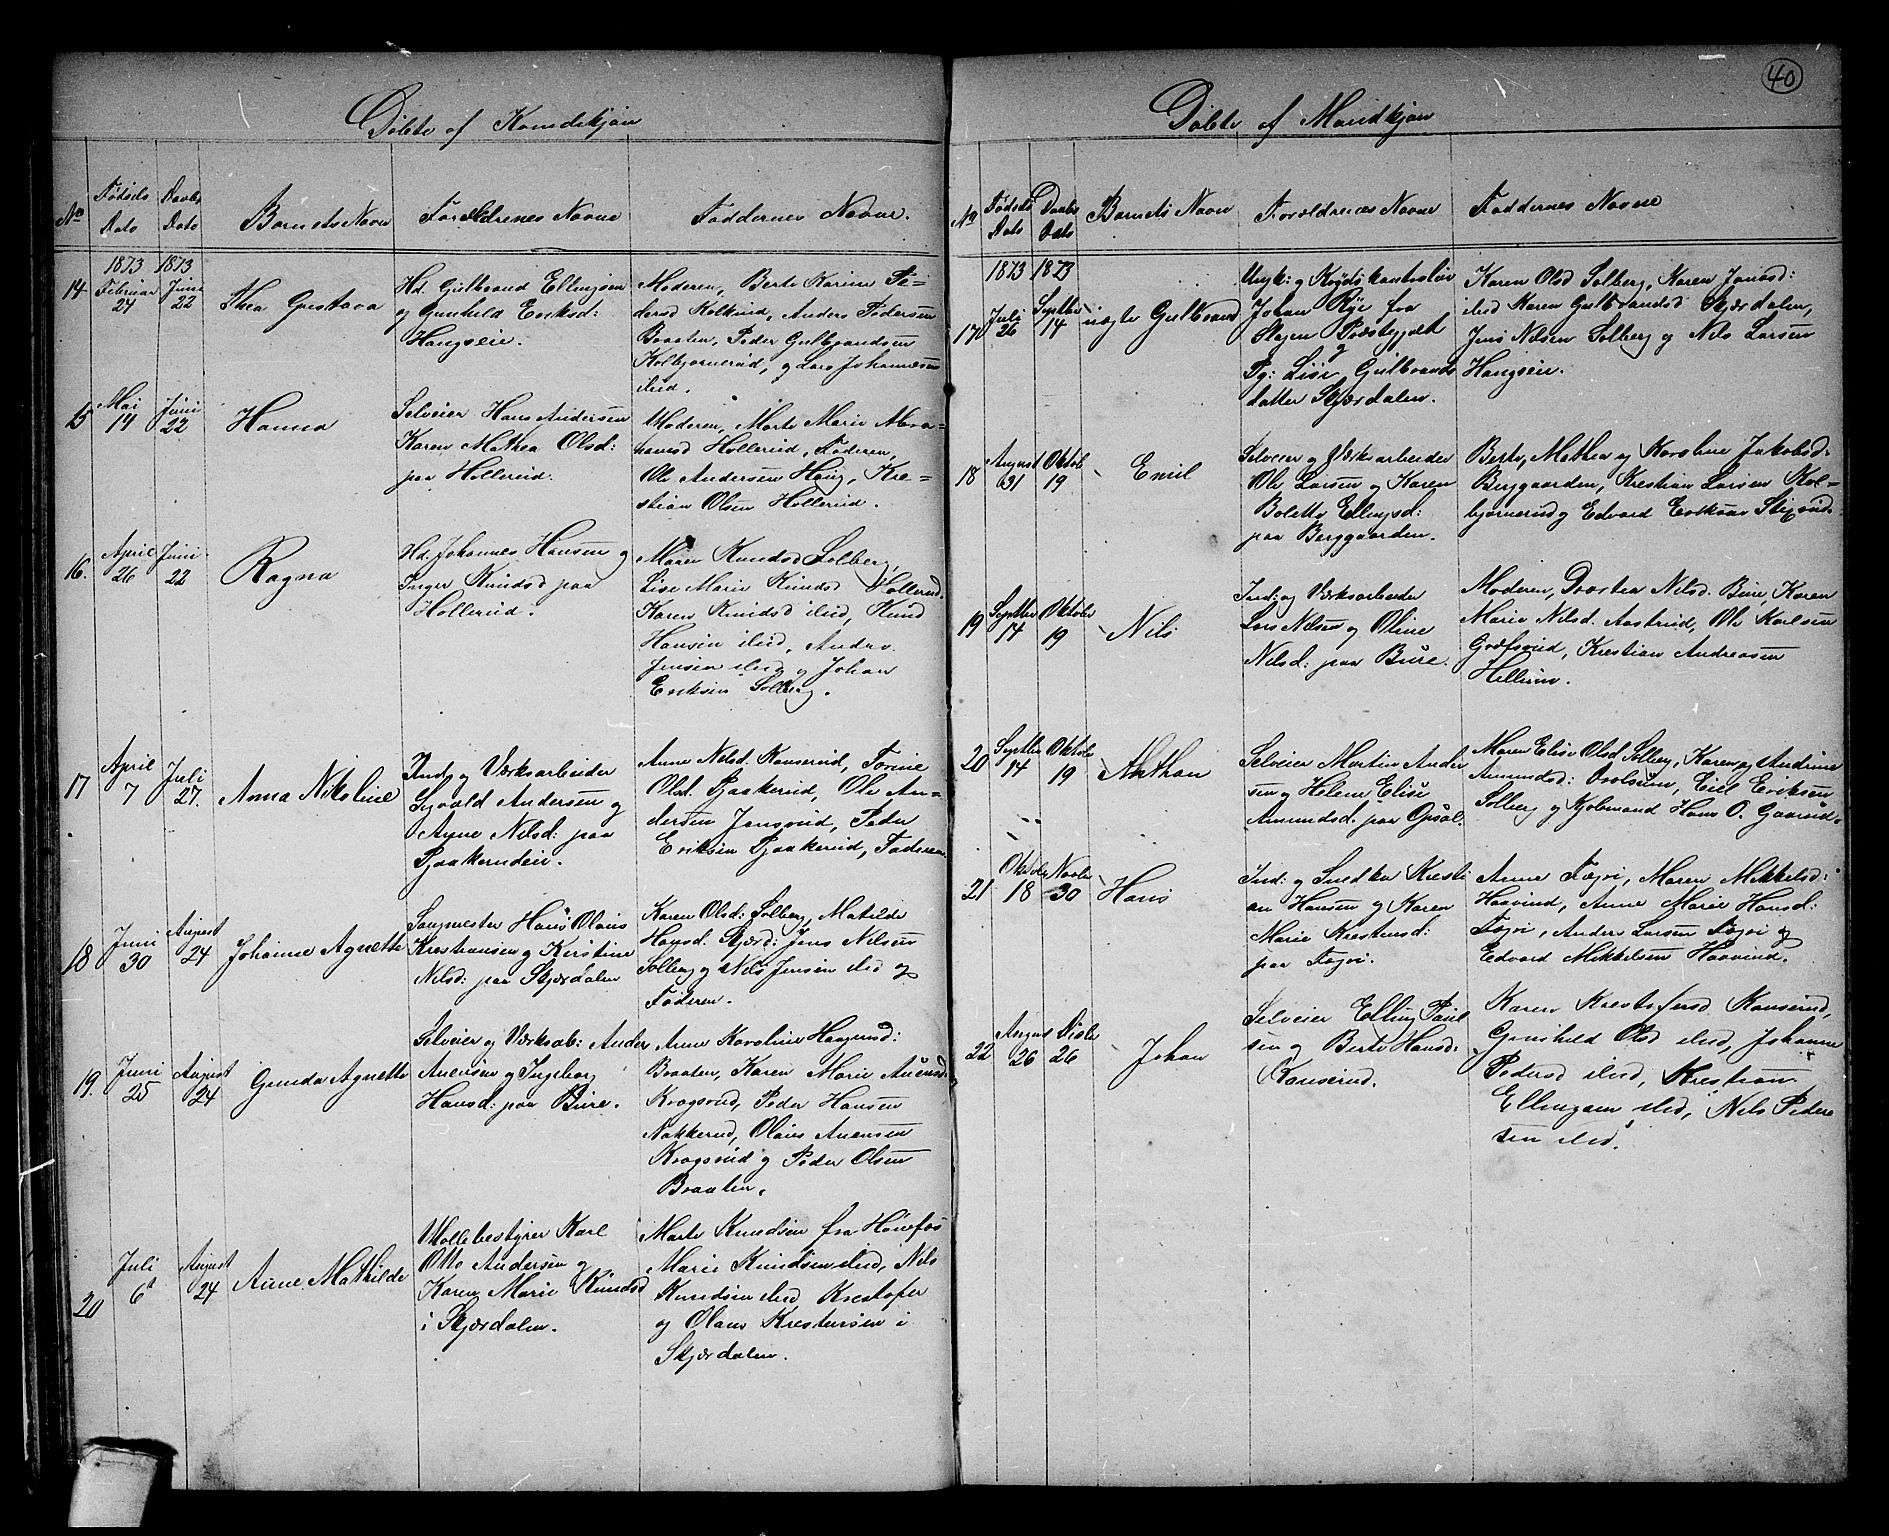 40
Døbte af Kvindekjøn
No
Fødsels Dato
Daabs Dato
Barnets Navn
Forældrenes Navne
Faddernes Navne.
1873 1873
14 Februar 24 Juni 22
Thea Gustava
Hd. Gulbrand Ellingsen
og Gunhild Eriksd:
Haugseie.
Moderen, Berte Karine Pe-
dersd Kolkind, Anders Pedersen
Braaten, Peder Gulbrandsen
Kolbjørnerud, og Lars Johannesen
ibid.
15 Mai 19 Juni 22
Hanna
Selveier Hans Andersen
Karen Mathea Olsd:
paa Hollerud.
Moderen, Marte Marie
Hollerud, Faderen,
Ole Andersen Haug, Kre-
stian Olsen Hollerud.
16. April 26 Juni 22
Ragna
Hd. Johannes Hansen og
Inger Knudsd paa
Hollerud.
Maren Knudsd Solberg,
Lise Marie Knudsd Hollerud.
Karen Knudsd ibid, Knud
Hansen ibid, Anders
Jensen ibid og Johan
Eriksen Solberg.
17 April 7 Juli 27.
Anna Nikoline
Ind. og Værksarbeider
Sigvald Andersen og
Anne Nilsd: paa
Bjaakerudeie.
Anne Nilsd. Ramserud, Torine
Olsd. Bjaakerud, Ole An-
dersen Jonsrud, Peder
Eriksen Bjaakerud, Faderen.
18 Juni 30 August 24
Johanne Agnette
Saugmester Hans Olaus
Krestiansen og Kirstine
Nilsd: paa Skjærdalen
Karen Olsd: Solberg, Matilde
Hansd. Skjærd: Jens Nilsen
Solberg og Nils Jensen ibid og
Faderen.
19. Juni 25 August 24
Gunda Agnette
Selveier og Værksab: Anders
Auensen og Ingeborg
Hansd: paa Bure.
Anne Karoline Haagensd:
Braaten, Karen Marie Auensd:
Krogsrud, Peder Hansen
Nakkerud, Olaus Auensen
Krogsrud og Peder Olsen
Braaten.
20 Juli 6 August 24
Anne Mathilde
Møllebestyrer Karl
Otto Andersen og
Karen Marie Knudsd
i Skjærdalen.
Marte Knudsen fra Hønefos
Marie Knudsen ibid, Nils
Knudsen ibid Krestofer
og Olaus Krestensen i
Skjærdalen.
Døbte af Mandkjøn
No
Fødsels Dato
Daabs Dato
Barnets Navn
Forældrenes Navne
Faddernes Navne
1873 1873
17 Juli 26 Septbr 14
uægte Gulbrand
Ungk: og
Johan Rye fra
Slagen Præstegjeld
og
Pg: Lise Gulbrands
datter Skjærdalen.
Karen Olsd Solberg, Karen Jonasd:
ibid Karen Gulbrandsd Skjærdalen,
Jens Nilsen Solberg og Nils Larsen
Haugseie.
18 August 31 Oktob 19
Emil
Selveier og Værksarbeider
Ole Larsen og Karen
Bolette Ellingsd:
paa Berggaarden.
Berte, Mathea og Karoline Jakobsd.
Berggaarden, Krestian Larsen Kol-
bjørnerud og Edvard Eriksen
19 Septbr 14 Oktober 19
Nils
Ind: og Værksarbeider
Lars Nilsen og Oline
Nilsd: paa Bure.
Moderen, Dorthea Nilsd. Bure, Karen
Marie Nilsd. Aastrud, Ole Karlsen
Græfsrud, Krestian Andreasen
Hellum.
20 Septbr 14 Oktober 19
Anthon
Selveier Martin Ander
sen og Helene Elise
Amundsd. paa Opsal.
Maren Elise Olsd. Solberg, Karen og Andrine
Amundsd: Emil Eriksen
Solberg og Hans O. Gaarud.
21 Oktober 18 Novbr 30
Hans
Ind: og Snedker Kresti
an Hansen og Karen
Marie Krestensd:
paa Fegri.
Anne Fegri, Maren Mikkelsd:
Haavind, Anne Marie Hansd:
Fegri, Anders Larsen Fegri og
Edvard Mikkelsen Haavind.
22 August 26 Decbr 26
Johan
Selveier Elling Paul
sen og Berte Hansd:
Ramserud.
Karen Krestofersd Ramserud,
Gunhild Olsd ibid, Johanne
Pedersd ibid, Krestian
Ellingsen ibid, Nils Peder
sen ibid.